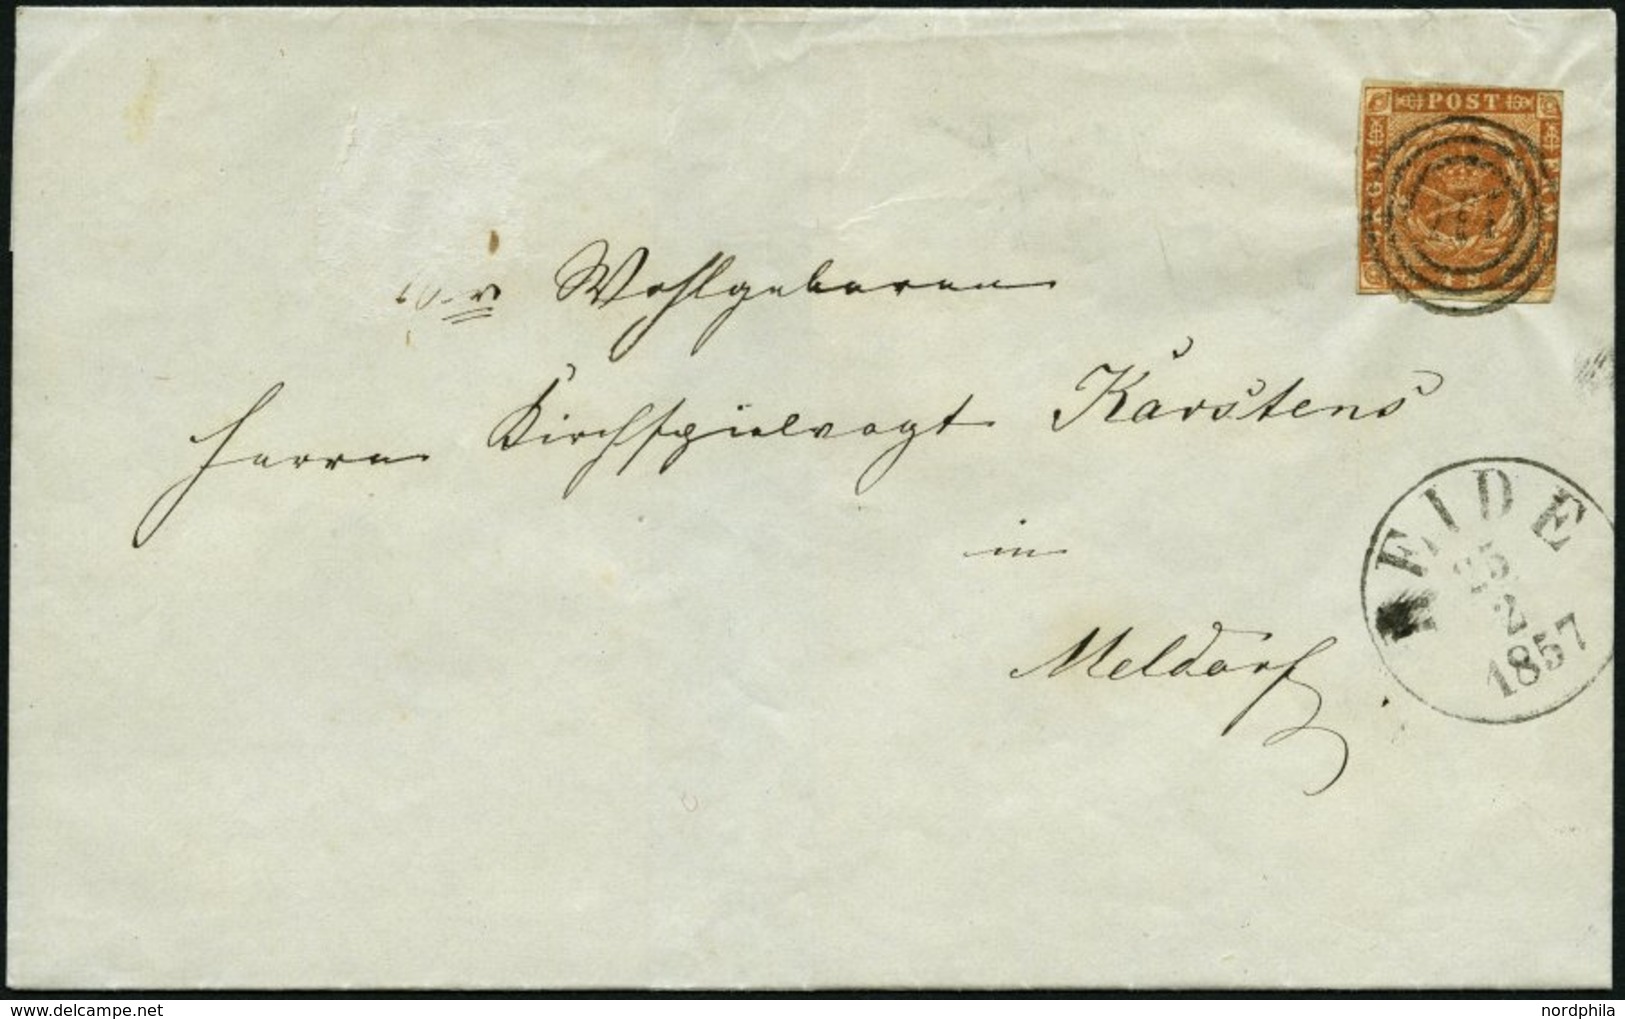 POST
Sr Wohlgebornen
Herrn Kirchspielvogt Karstens
in
Meldorf
HEIDE
25
2
1857
© delcampe.net
nordphila